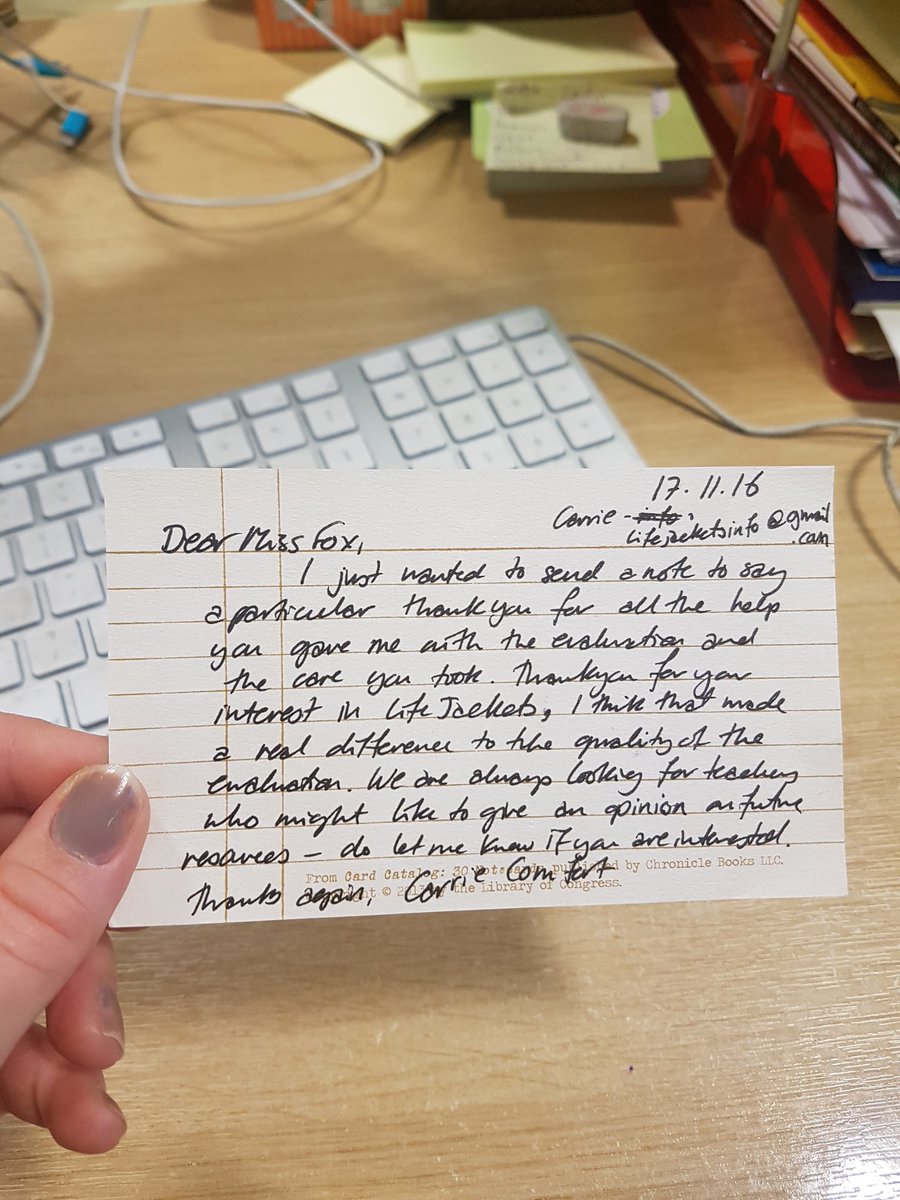 17.11.16
Carrie - info.
lifejacketsinfo@gmail
.com
Dear Miss Fox,
I just wanted to send a note to say
a particular thankyou for all the help
you gave me with the evaluation and
the care you took. Thankyou for your
interest in Life Jackets, I think that made
a real difference to the quality of the
evaluation. We are always looking for teachers
who might like to give an opinion on future
resources - do let me know if you are interested.
Thanks again, Carrie Comfort
From Card Catalog: 30 Notecards, published by Chronicle Books LLC.
© the Library of Congress.